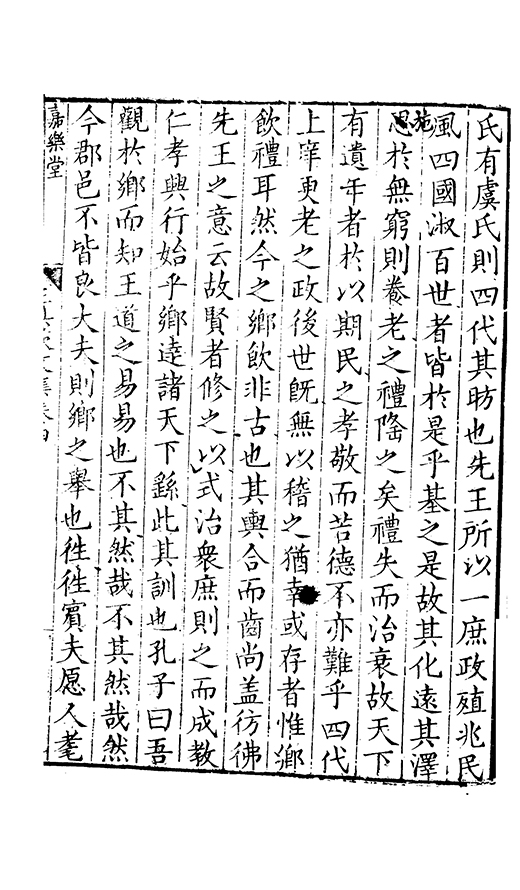 氏有虞氏則四代其昉也先王所以一庶政殖兆民
風四國淑百世者皆於是乎基之是故其化遠其澤
施於無窮則養老之禮隆之矣禮失而治衰故天下
有遺年者於以期民之孝敬而若德不亦難乎四代
上庠更老之政後世旣無以稽之猶幸或存者惟鄉
飲禮耳然今之鄉飲非古也其輿合而齒尚盖彷彿
先王之意云故賢者修之以式治衆庶則之而成教
仁孝興行始乎鄉達諸天下繇此其訓也孔子曰吾
觀於鄉而知王道之易易也不其然哉不其然哉然
今郡邑不皆良大夫則鄉之舉也徃徃賓夫愿人耄
嘉樂堂